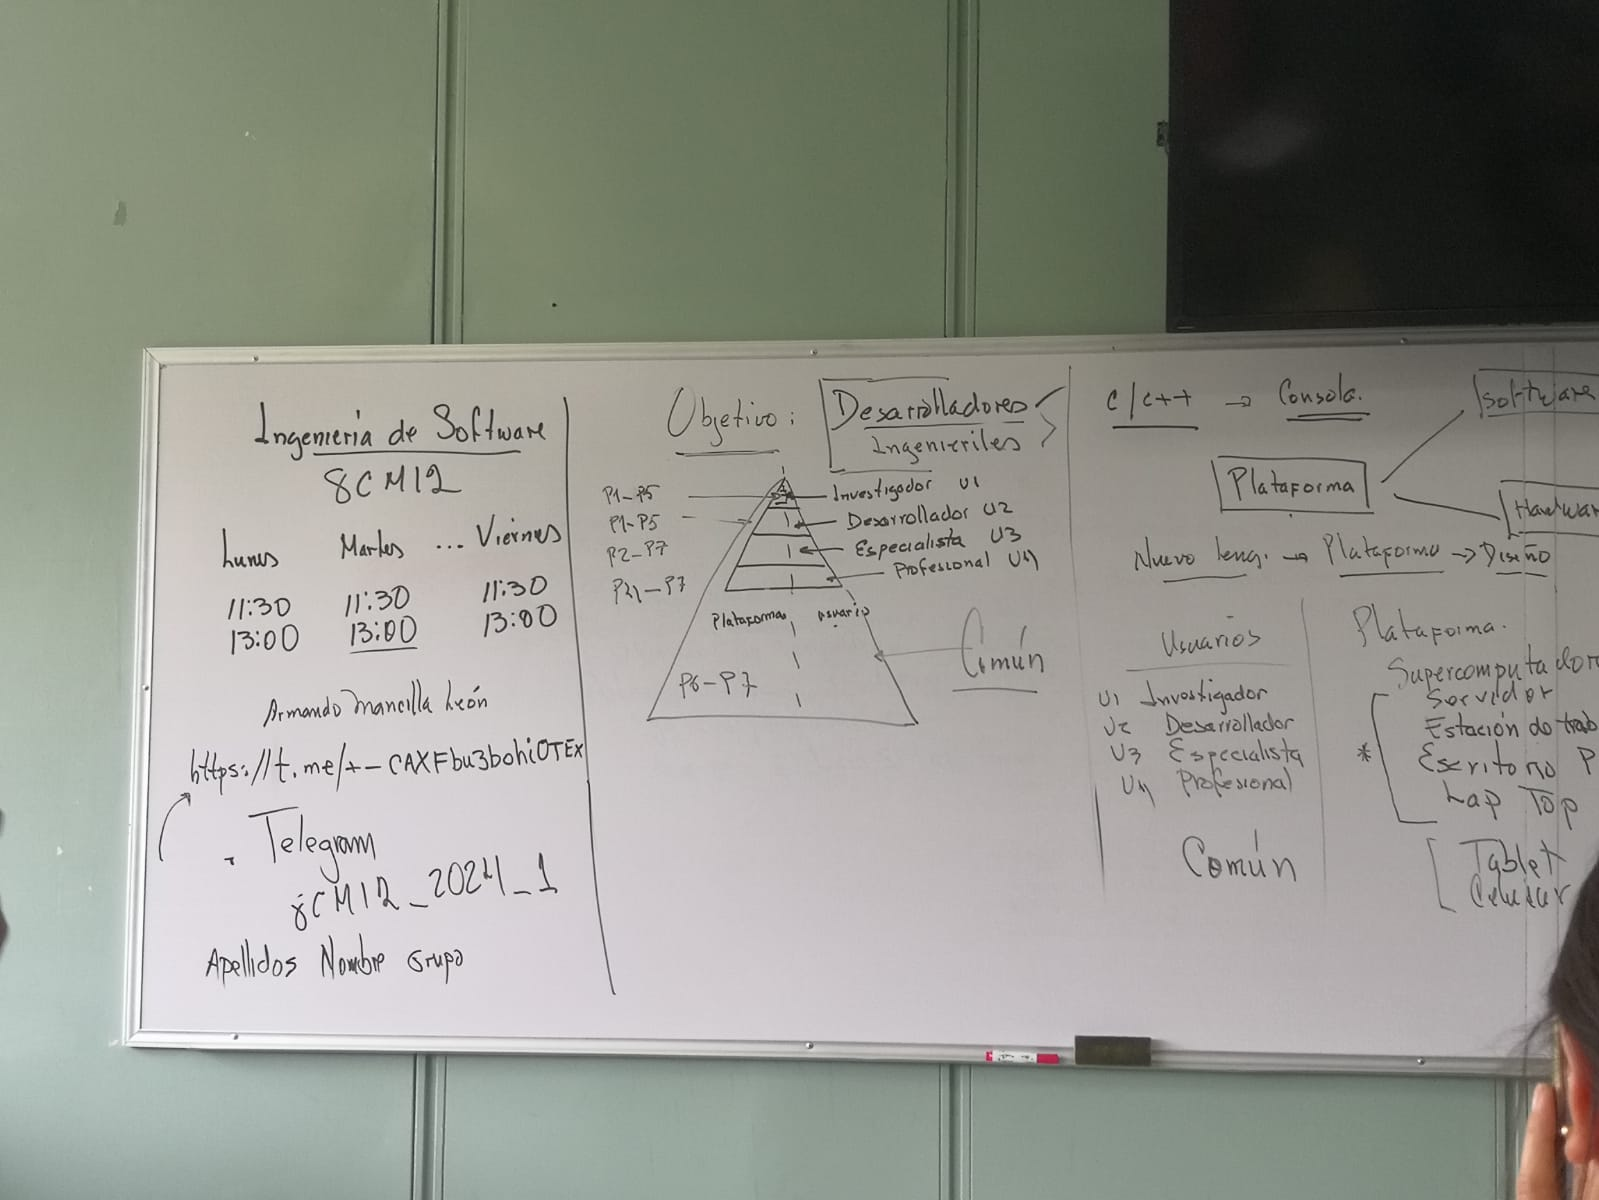 Ingeniería de Software
8CM12
Lunes Martes ... Viernes
11:30 11:30 11:30
13:00 13:00 13:00
Armando Mancilla León
https://t.me/+-CAXFbu3bohiOTEx
Telegram
8CM12_2024_1
Apellidos Nombre Grupo
Objetivo: Desarrolladores
Ingenieriles
P1-P5 Investigador U1
P1-P5 Desarrollador U2
P2-P7 Especialista U3
P4-P7 Profesional U4
Plataformas usuario
Común
P6-P7
C/C++ → Consola.
Software
Plataforma
Nuevo Leng. → Plataforma → Diseño
Usuarios
U1 Investigador
U2 Desarrollador
U3 Especialista
U4 Profesional
Común
Plataforma.
Servidor
Estación de
* Escritorio P
Lap Top
Tablet
Celular